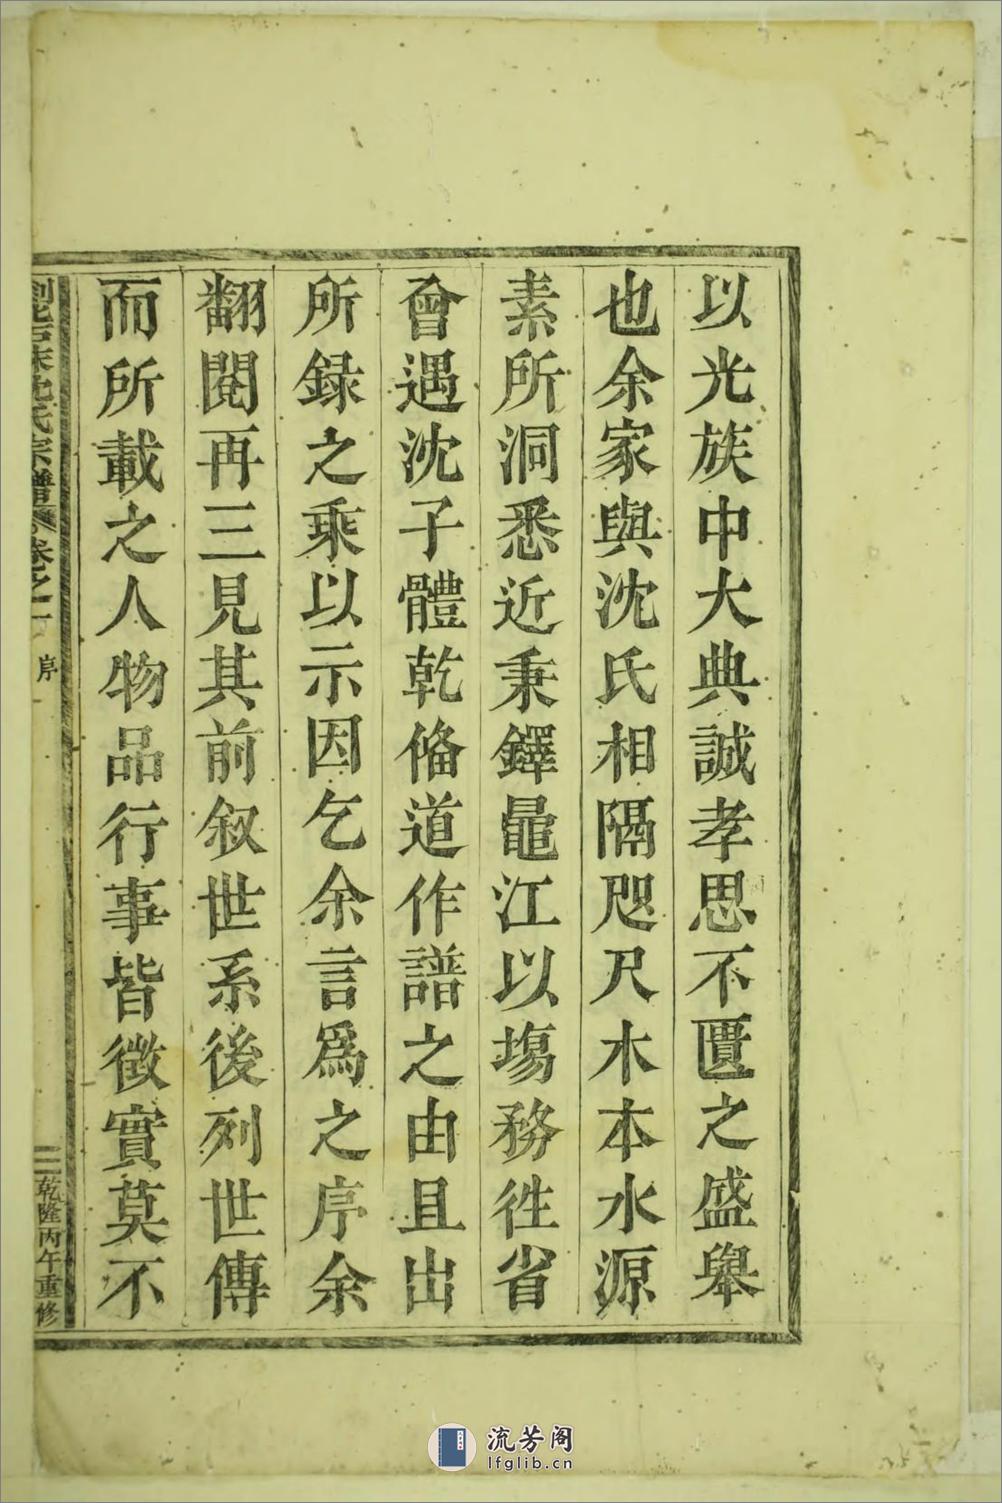 以光族中大典誠孝思不匱之盛舉
也余家與沈氏相隔咫尺木本水源
素所洞悉近秉鐸鼂江以塲務徃省
會遇沈子體乾偹道作譜之由且出
所録之乘以示因乞余言爲之序余
翻閱再三見其前叙世系後列世傳
而所載之人物品行事皆徴實莫不
沈氏宗譜 卷之一 序 三 乾隆丙午重修
流芳阁
lfglib.cn